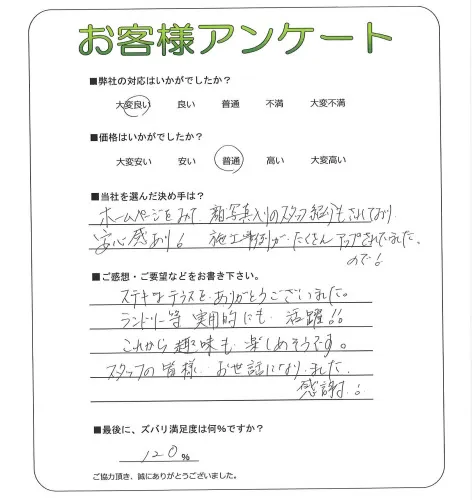 お客様アンケート
■弊社の対応はいかがでしたか?
大変良い 良い 普通 不満 大変不満
■価格はいかがでしたか?
大変安い 安い 普通 高い 大変高い
■当社を選んだ決め手は?
ホームページをみて、顔写真入りのスタッフ紹介もされており、
安心感あり! 施工事例が、たくさん アップされてました。
ので!
■ご感想・ご要望などをお書き下さい。
ステキなテラスを、ありがとうございました。
ランドリー等 実用的にも、活躍!!
これから 趣味も 楽しめそうです。
スタッフの皆様、お世話になりました。
感謝!
■最後に、ズバリ満足度は何%ですか?
120%
ご協力頂き、誠にありがとうございました。